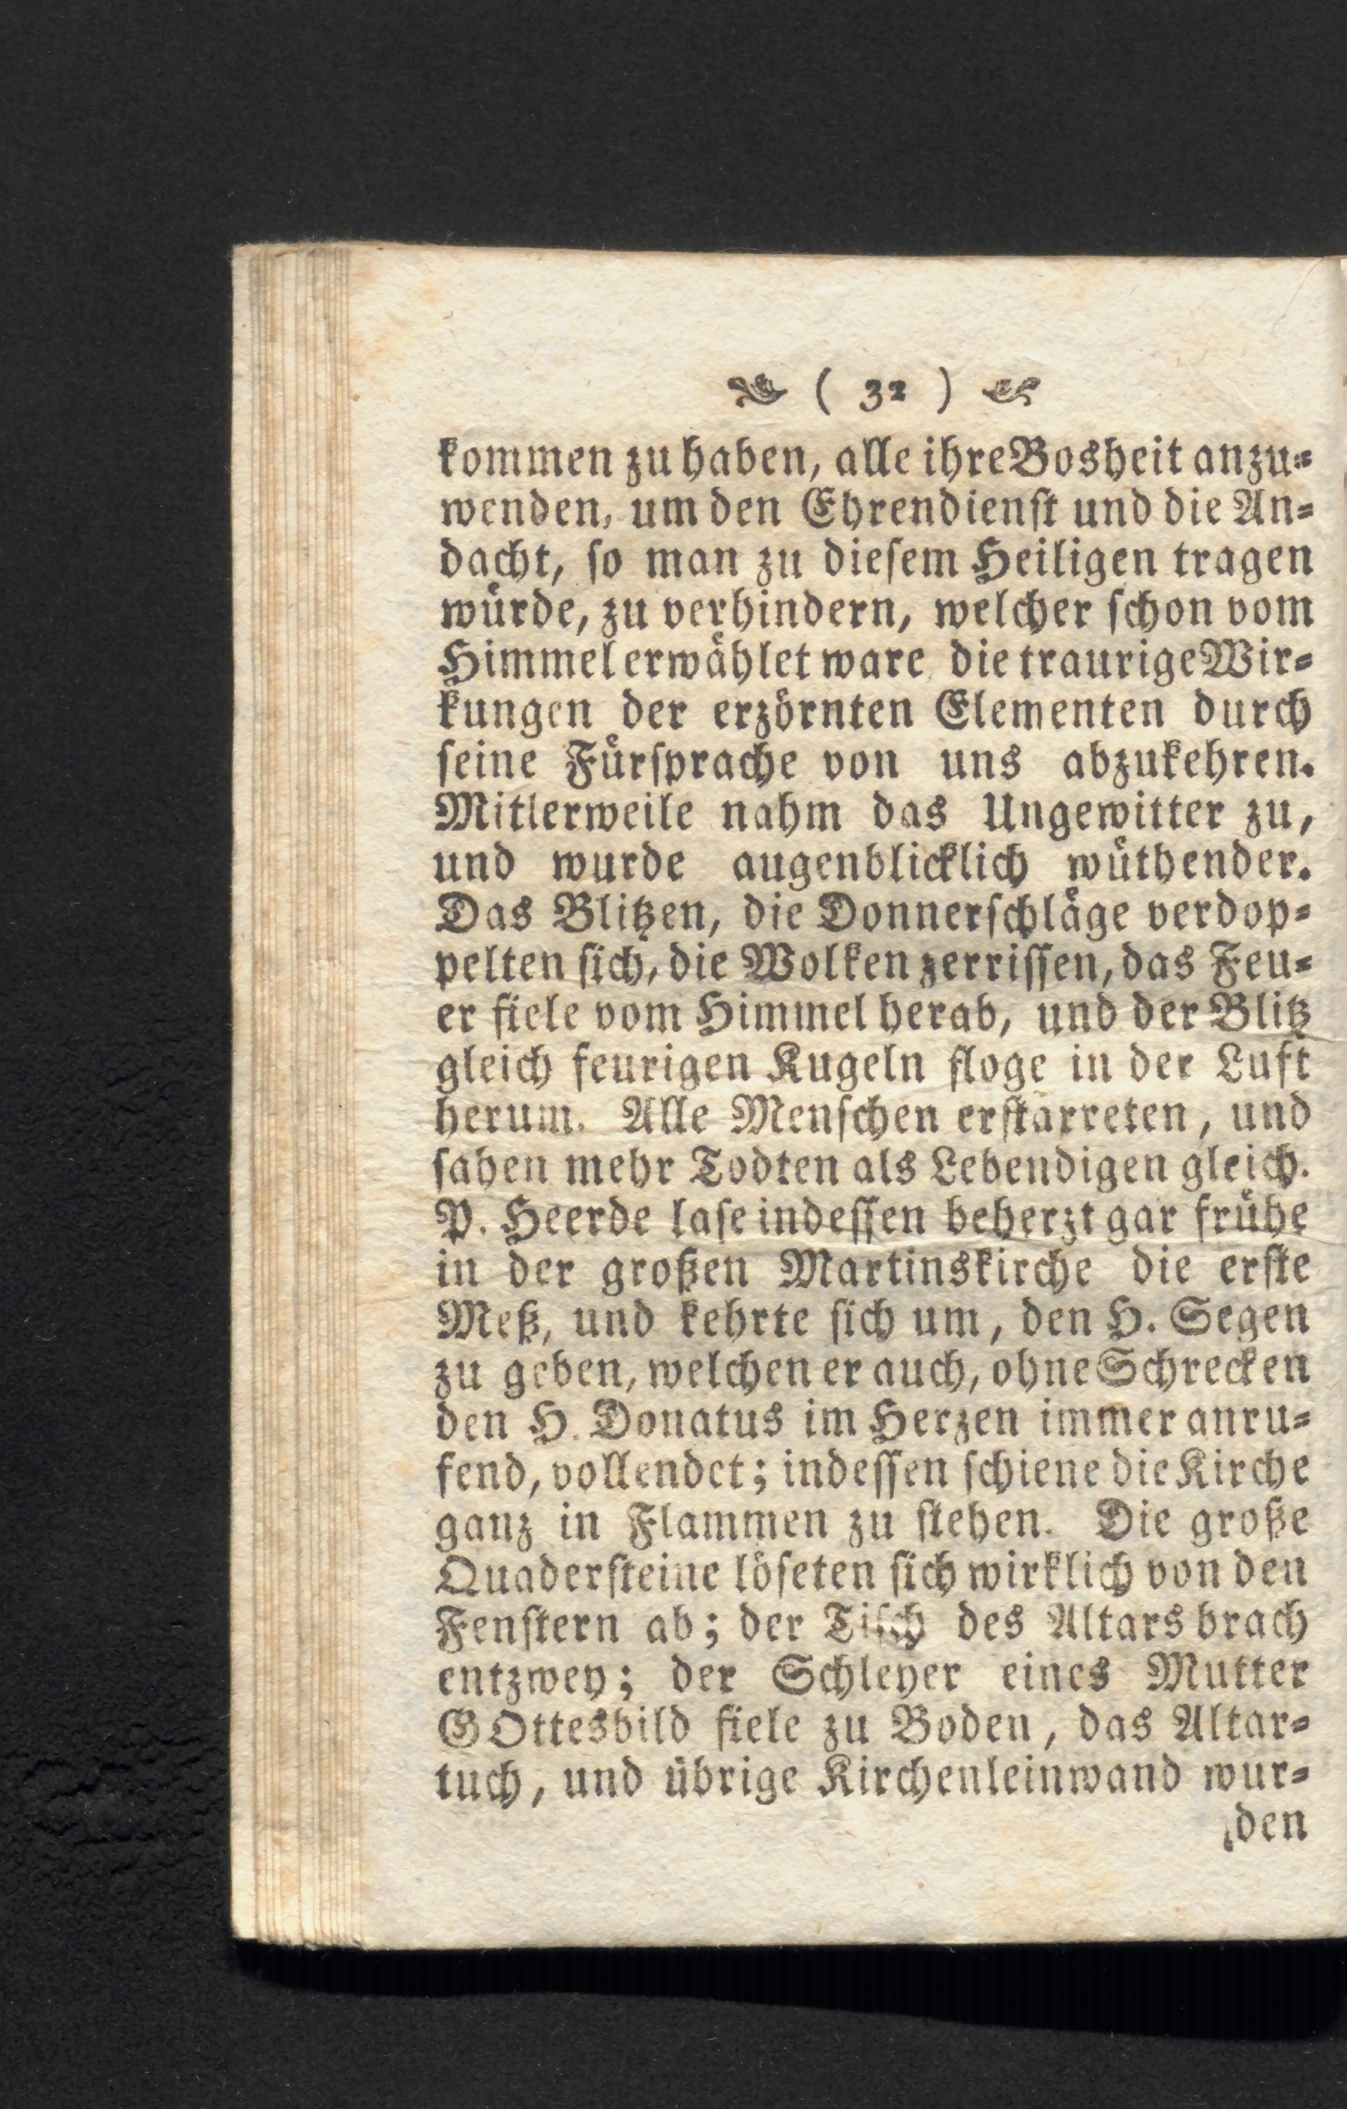 ( 32 )
kommen zu haben, alle ihre Bosheit anzu⸗
wenden, um den Ehrendienſt und die An⸗
dacht, ſo man zu dieſem Heiligen tragen
wuͤrde, zu verhindern, welcher ſchon vom
Himmel erwaͤhlet ware die traurige Wir⸗
kungen der erzoͤrnten Elementen durch
ſeine Fuͤrſprache von uns abzukehren.
Mitlerweile nahm das Ungewitter zu,
und wurde augenblicklich wuͤthender.
Das Blitzen, die Donnerſchlaͤge verdop⸗
pelten ſich, die Wolken zerriſſen, das Feu⸗
er fiele vom Himmel herab, und der Blitz
gleich feurigen Kugeln floge in der Luft
herum. Alle Menſchen erſtarreten, und
ſahen mehr Todten als Lebendigen gleich.
P. Heerde laſe indeſſen beherzt gar fruͤhe
in der großen Martinskirche die erſte
Meß, und kehrte ſich um, den H. Segen
zu geben, welchen er auch, ohne Schrecken
den H. Donatus im Herzen immer anru⸗
fend, vollendet; indeſſen ſchiene die Kirche
ganz in Flammen zu ſtehen. Die große
Quaderſteine loͤſeten ſich wirklich von den
Fenſtern ab; der Tiſch des Altars brach
entzwey; der Schleyer eines Mutter
GOttesbild fiele zu Boden, das Altar⸗
tuch, und uͤbrige Kirchenleinwand wur⸗
den